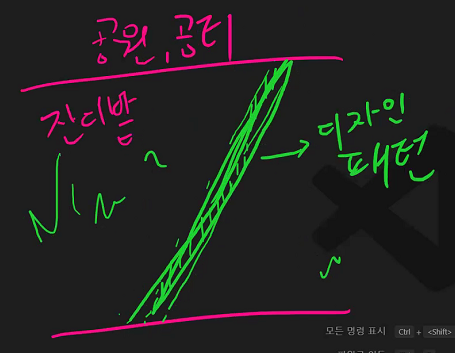 공원, 공터
잔디밭
디자인
패턴
모든 명령 표시 Ctrl + <Shift>